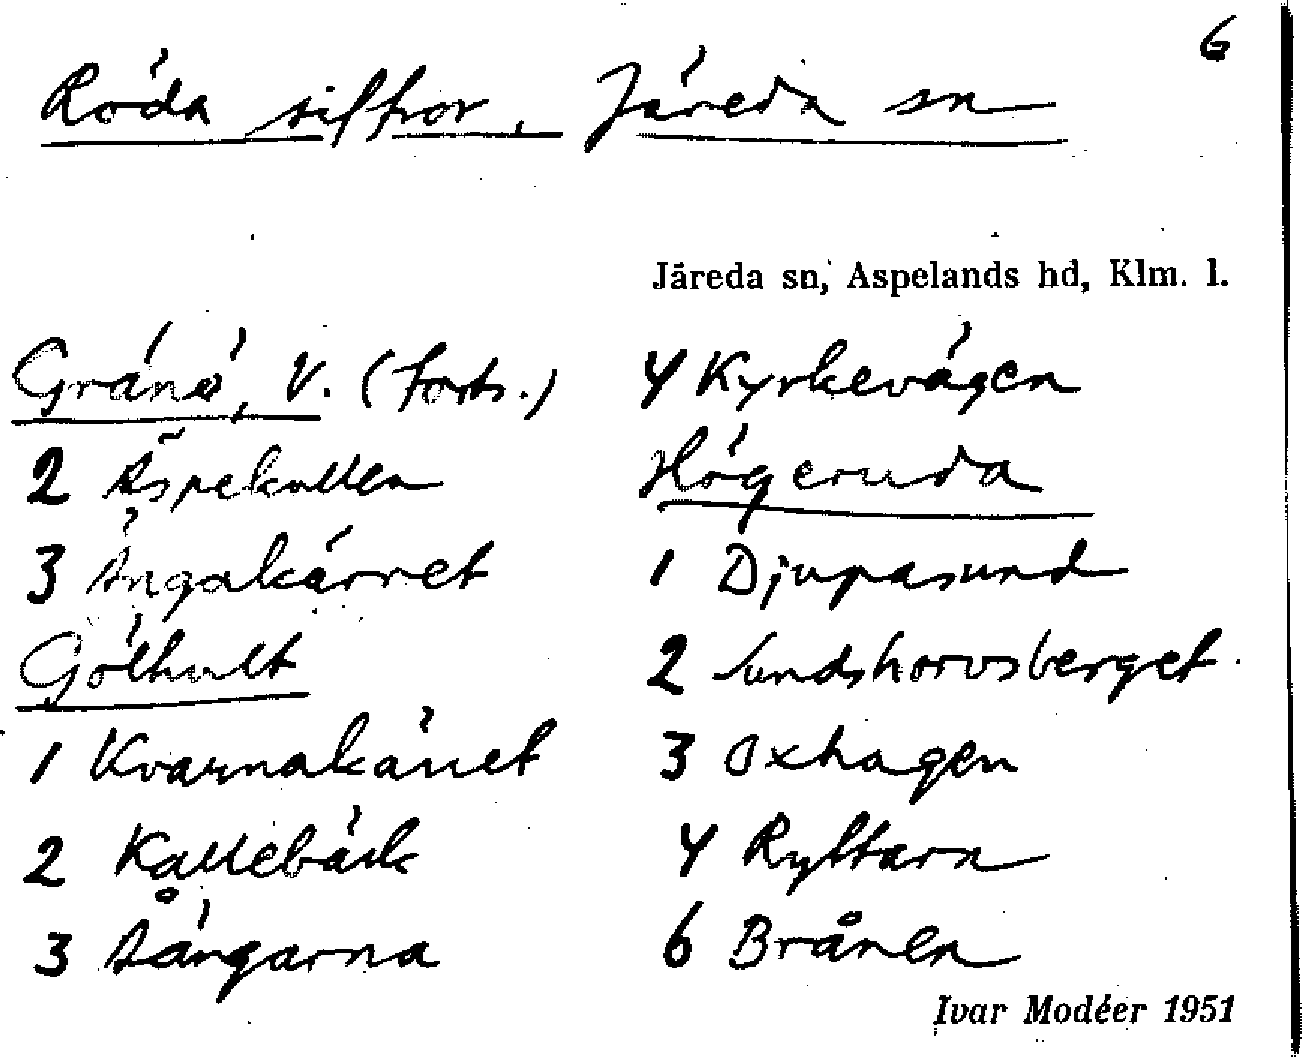 6
Röda siffror, Järeda sn
Järeda sn, Aspelands hd, Klm. l.
Gränö, V. (forts.)
2 Äspekullen
3 Ängakärret
Gölhult
1 Kvarnakärret
2 Kallebäck
3 Åängarna
4 Kyrkevägen
Högeruda
1 Djupasund
2 Sundshorvsberget
3 Oxhagen
4
6 Brånen
Ivar Modéer 1951